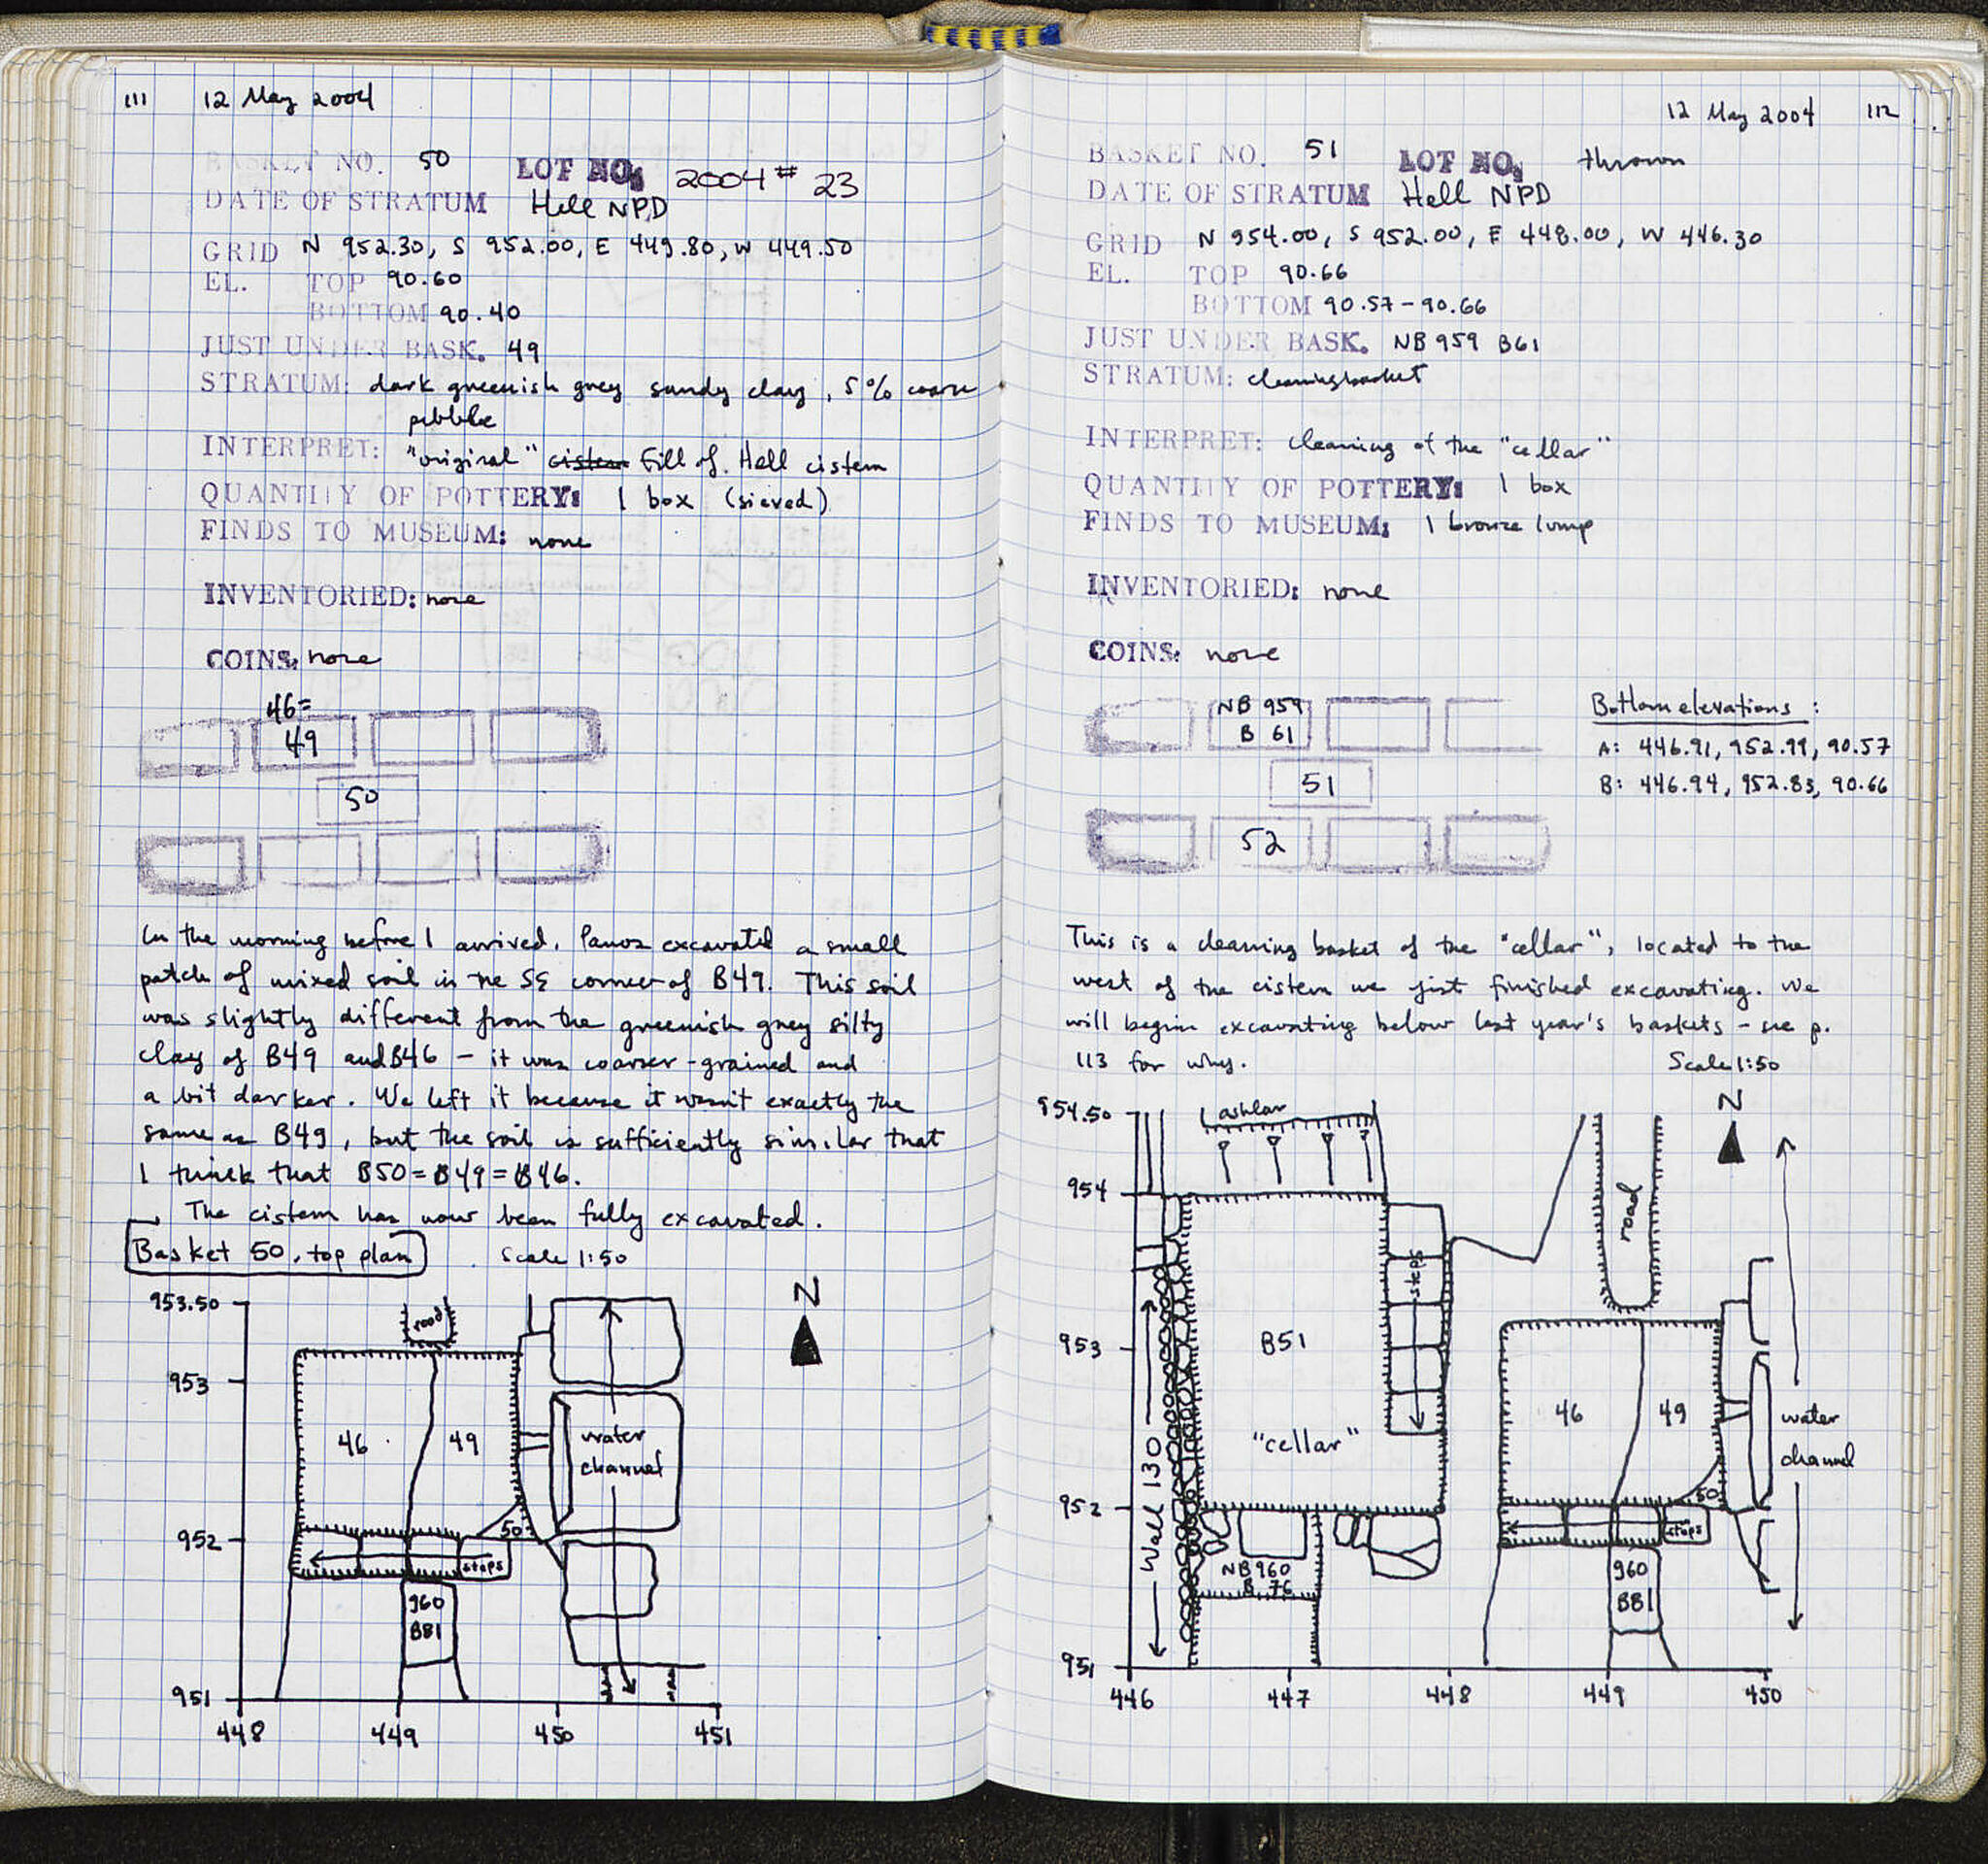 111 12 May 2004
BASKET NO. 50 LOT NO. 2004 # 23
DATE OF STRATUM Hell NPD
GRID N 952.30, S 952.00, E 449.80, W 449.50
EL. TOP 90.60
BOTTOM 90.40
JUST UNDER BASK. 49
STRATUM: dark greenish grey sandy clay, 5% coarse
pebble
INTERPRET: "original" cistern fill of Hell cistern
QUANTITY OF POTTERY: 1 box (sieved)
FINDS TO MUSEUM: none
INVENTORIED: none
COINS: none
46=
49
50
In the morning before I arrived, Panos excavated a small
patch of mixed soil in the SE corner of B49. This soil
was slightly different from the greenish grey silty
clay of B49 and B46 – it was coarser-grained and
a bit darker. We left it because it wasn't exactly the
same as B49, but the soil is sufficiently similar that
I think that B50=B49=B46.
The cistern has now been fully excavated.
Basket 50, top plan Scale 1:50
N
953.50
road
953
46 49
water
channel
952
50
steps
960
B81
951
448 449 450 451
12 May 2004 112
BASKET NO. 51 LOT NO. thrown
DATE OF STRATUM Hell NPD
GRID N 954.00, S 952.00, E 448.00, W 446.30
EL. TOP 90.66
BOTTOM 90.57-90.66
JUST UNDER BASK. NB 959 B61
STRATUM: cleaning basket
INTERPRET: cleaning of the "cellar"
QUANTITY OF POTTERY: 1 box
FINDS TO MUSEUM: 1 bronze lump
INVENTORIED: none
COINS: none
NB 959
B 61
51
52
Bottom elevations:
A: 446.91, 952.99, 90.57
B: 446.94, 952.83, 90.66
This is a cleaning basket of the "cellar", located to the
west of the cistern we just finished excavating. We
will begin excavating below last year's baskets – see p.
113 for why.
Scale 1:50
N
954.50
ashlar
954
road
steps
953
B51
46 49
"cellar"
water
channel
Wall 130
952
50
steps
NB 960
B 76
960
B81
951
446 447 448 449 450